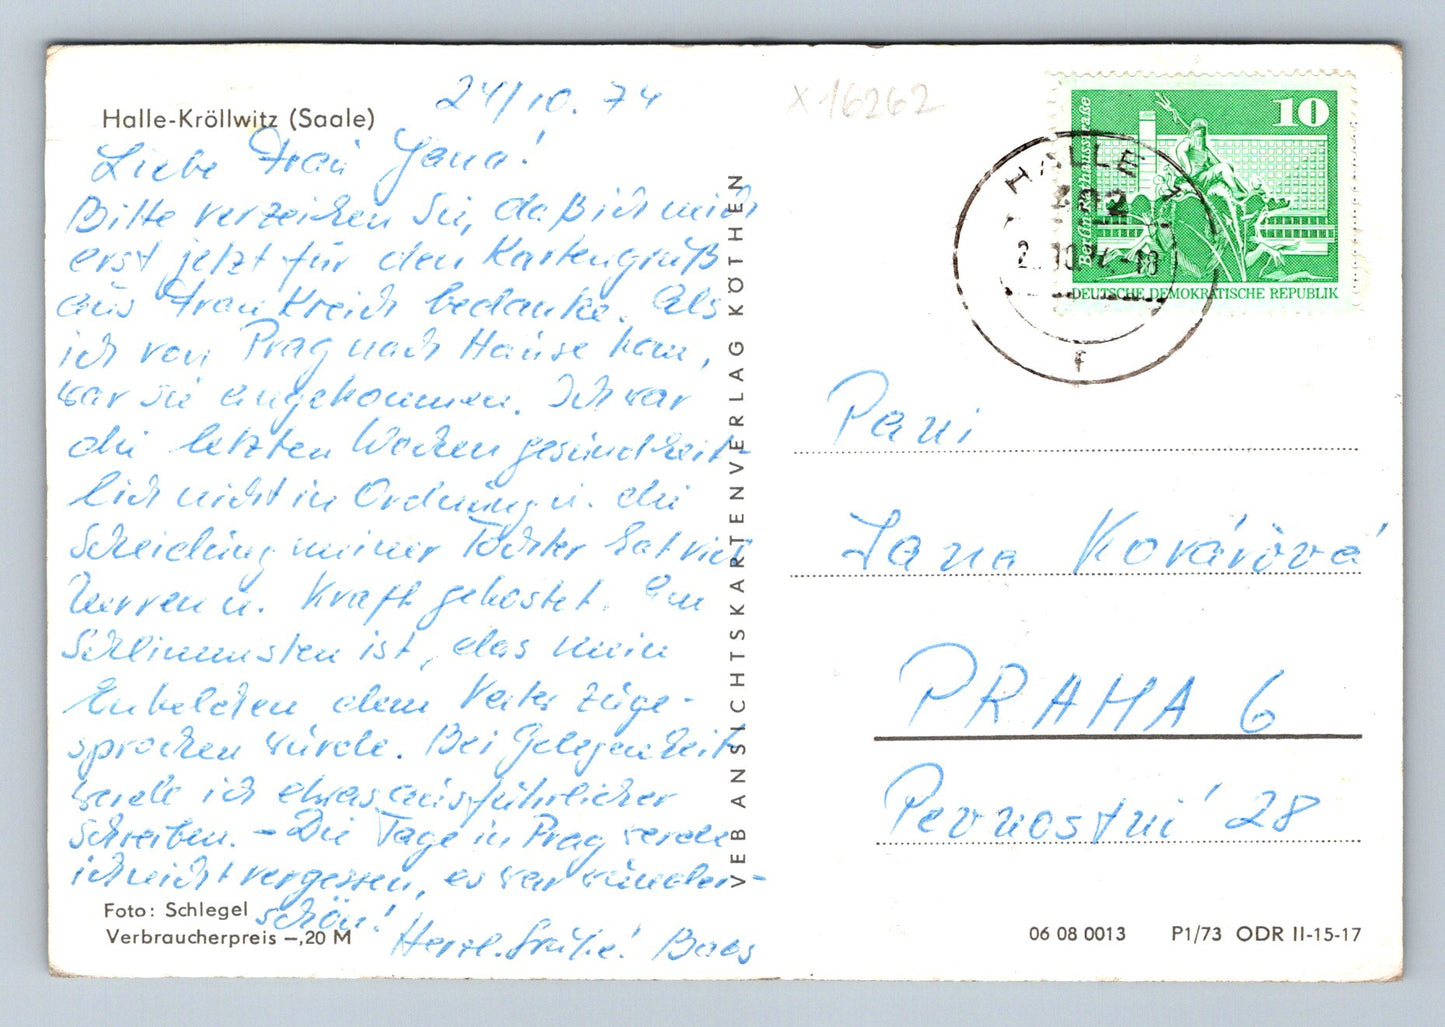 Halle-Kröllwitz (Saale)
24/10. 74
Liebe Frau Jana!
Bitte verzeihen Sie, daß ich mich
erst jetzt für den Kartengruß
aus Frankreich bedanke. Als
ich von Prag nach Hause kam,
war sie angekommen. Ich war
die letzten Wochen gesundheit-
lich nicht in Ordnung u. die
Scheidung meiner Tochter hat viel
Nerven u. Kraft gekostet. Am
Schlimmsten ist, das mein
Enkelchen dem Vater zuge-
sprochen wurde. Bei Gelegenheit
werde ich etwas ausführlicher
schreiben. – Die Tage in Prag werde
ich nicht vergessen, es war wunder-
schön!
Herzl. Grüße!
Foto: Schlegel
Verbraucherpreis –,20 M
VEB ANSICHTSKARTENVERLAG KÖTHEN
x 16262
10
Berlin Rathausstraße
DEUTSCHE DEMOKRATISCHE REPUBLIK
HALLE 2
.10.74.-18
r
Paní
Jana Kovářová
PRAHA 6
Pevnostní 28
06 08 0013 P1/73 ODR II-15-17